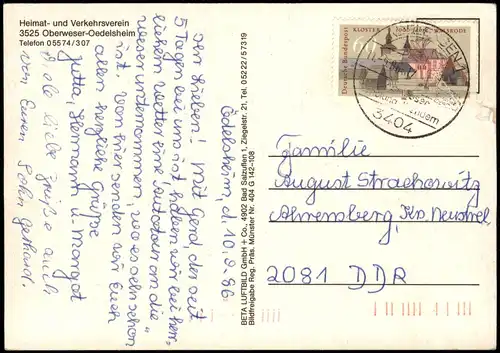 Heimat- und Verkehrsverein
3525 Oberweser-Oedelsheim
Telefon 05574/307
Ödelsheim, d. 10.9.86
Ihr Lieben! Mit Gerd, der seit
5 Tagen bei uns ist, haben wir bei herr-
lichem Wetter eine Autotour an die
Weser unternommen, wo es sehr schön
ist. Von hier senden wir Euch
allen herzliche Grüße
Jutta, Hermann u. Margot
Viele liebe Grüße auch
von Euren Sohn Gerhard.
BETA LUFTBILD GmbH + Co., 4902 Bad Salzuflen 1, Ziegelstr. 21, Tel. 05222/57319
Bildfreigabe Reg. Präs. Münster Nr. 404 G 142-108
KLOSTER 1000 Jahre WALSRODE
Deutsche Bundespost
60
3404
Familie
August Strachowitz
Ahrensberg, Krs. Neustrel.
2081 DDR